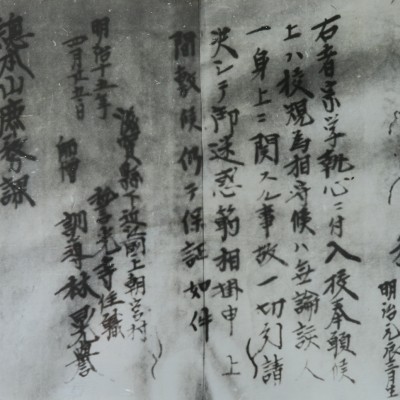 明治元辰三月生
右者宗学執心ニ付入校奉願候
上ハ校規為相守候ハ無論該人
一身上ニ関スル事故一切引請
決シテ御迷惑筋相掛申上
間敷候仍テ保証如件
滋賀縣下近江国上朝宮村
寺住職
明治十五年
四月廿五日
訓導林
總本山